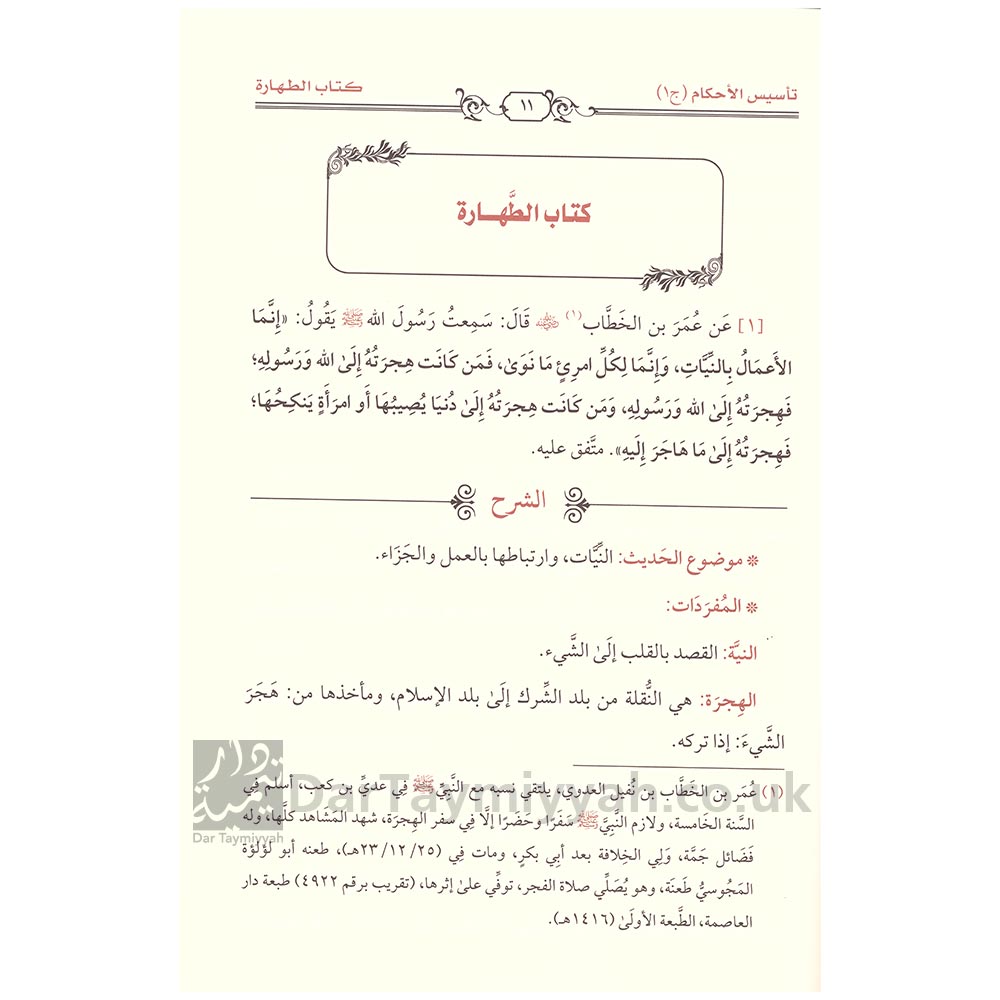 تأسيس الأحكام (ج١)
١١
كتاب الطهارة
كتاب الطَّهـــارة
[١] عَن عُمَرَ بن الخَطَّاب(١) ﵁ قَالَ: سَمِعتُ رَسُولَ الله ﷺ يَقُولُ: «إِنَّمَا
الأَعمَالُ بِالنِّيَّاتِ، وَإِنَّمَا لِكُلِّ امرِئٍ مَا نَوَىٰ، فَمَن كَانَت هِجرَتُهُ إِلَىٰ الله وَرَسُولِهِ؛
فَهِجرَتُهُ إِلَىٰ الله وَرَسُولِهِ، وَمَن كَانَت هِجرَتُهُ إِلَىٰ دُنيَا يُصِيبُهَا أَو امرَأَةٍ يَنكِحُهَا؛
فَهِجرَتُهُ إِلَىٰ مَا هَاجَرَ إِلَيهِ». متَّفق عليه.
الشرح
* موضوع الحَديث: النِّيَّات، وارتباطها بالعمل والجَزَاء.
* المُفرَدَات:
النيَّة: القصد بالقلب إلَىٰ الشَّيء.
الهِجرَة: هي النُّقلة من بلد الشِّرك إلَىٰ بلد الإسلام، ومأخذها من: هَجَرَ
الشَّيءَ: إذا تركه.
(١) عُمَر بن الخَطَّاب بن نُفَيل العدوي، يلتقي نسبه مع النَّبِيِّ ﷺ في عديِّ بن كعب، أسلم فِي
السَّنة الخَامسة، ولازم النَّبِيَّ ﷺ سَفَرًا وحَضَرًا إلَّا فِي سفر الهِجرَة، شهد المَشَاهد كلَّها، وله
فَضَائل جَمَّة، وَلِي الخِلافة بعد أبي بكرٍ، ومات فِي (٢٣/١٢/٢٥هـ)، طعنه أبو لُؤلؤة
المَجُوسيُّ طَعنَة، وهو يُصَلِّي صلاة الفجر، توفِّي علىٰ إثرها، (تقريب برقم ٤٩٢٢) طبعة دار
العاصمة، الطَّبعة الأولَىٰ (١٤١٦هـ).
دار تيمية
Dar Taymiyyah
DarTaymiyyah.co.uk